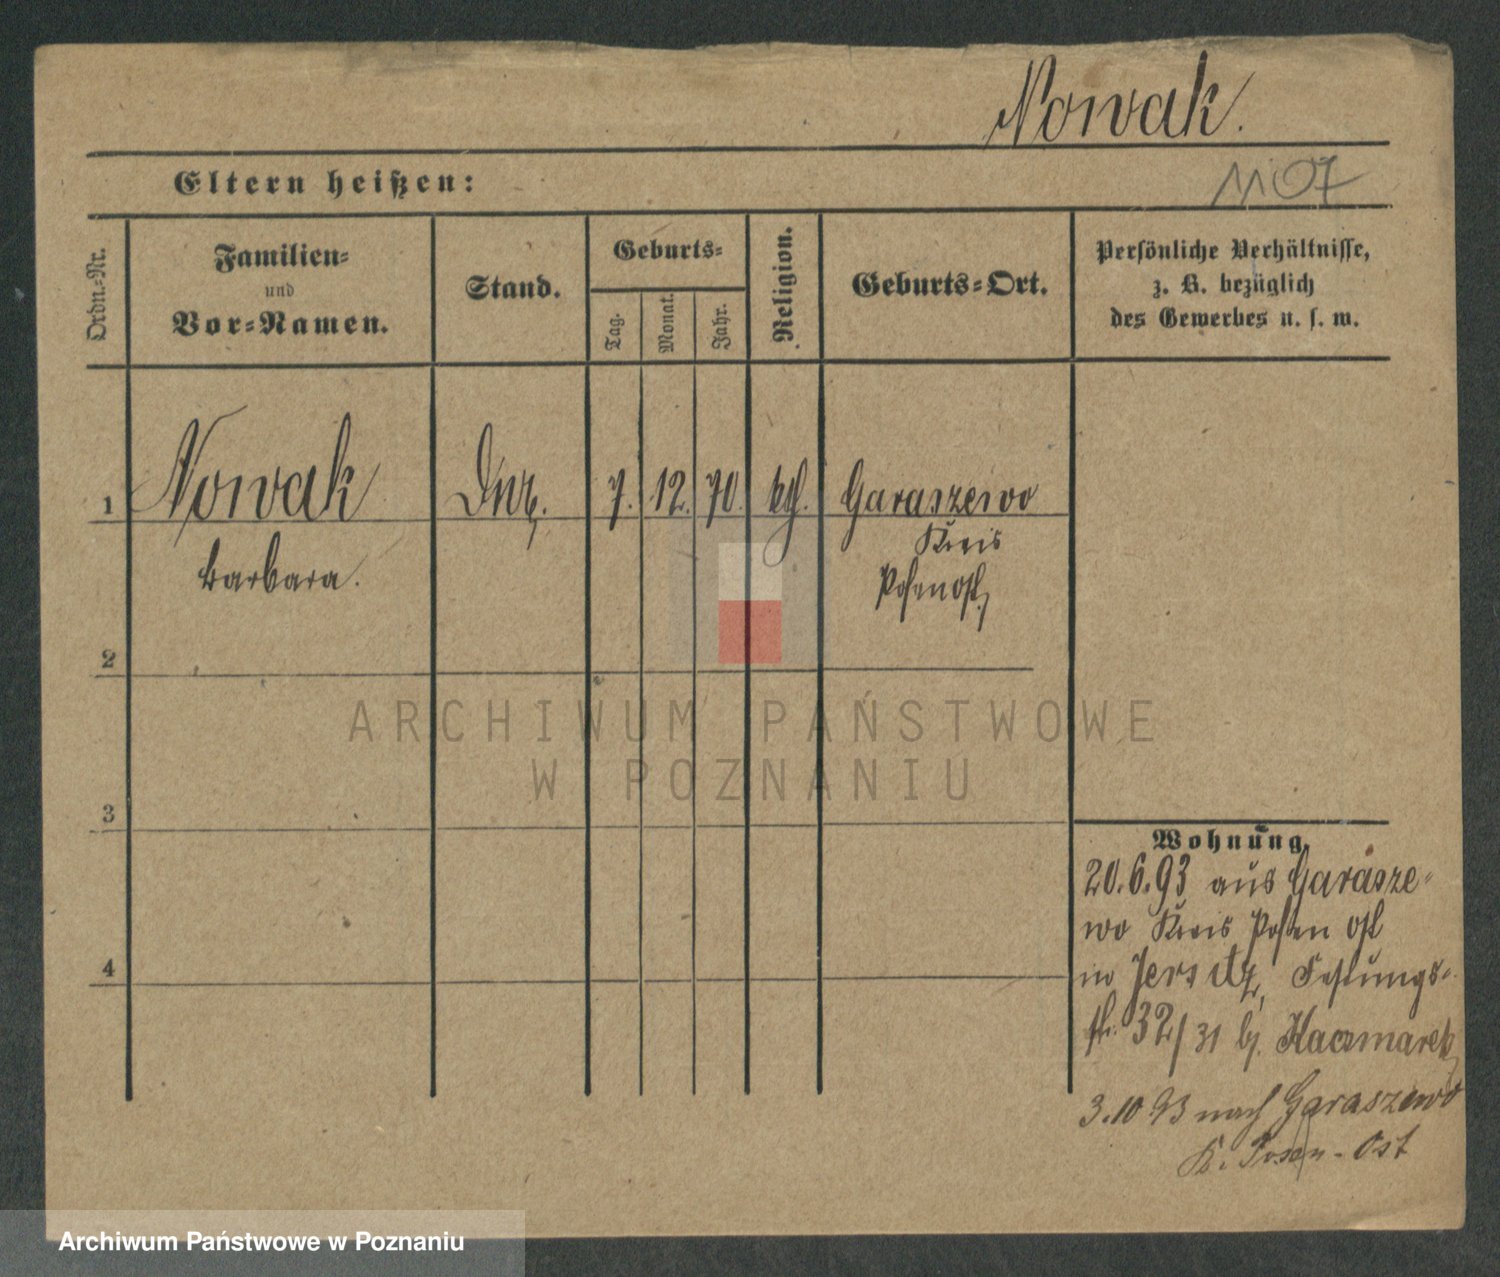 Nowak.
Eltern heißen:
1107
Ordn.-Nr.
Familien-
und
Vor-Namen.
Stand.
Geburts-
Tag.
Monat.
Jahr.
Religion.
Geburts-Ort.
Persönliche Verhältnisse,
z. B. bezüglich
des Gewerbes u. s. w.
1 Nowak 7. 12. 70. kth. Garaszewo
Kreis
Barbara. Posen Ost,
2
ARCHIWUM PAŃSTWOWE
W POZNANIU
3
Wohnung.
20.6.93 aus Garasze-
wo Kreis Posen Ost
4
in Jersitz, Festungs-
str. 32/31 bj. Kaczmarek
3.10 93 nach Garaszewo
K. Posen-Ost
Archiwum Państwowe w Poznaniu